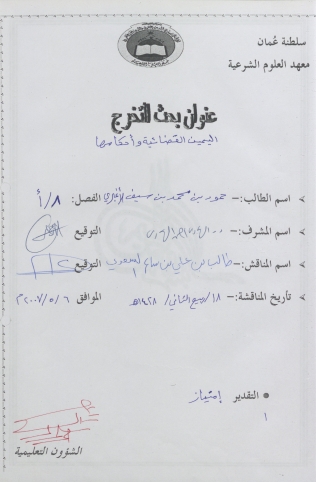 سلطنة عُمان
معهد العلوم الشرعية
عنوان بحث التخرج
اليمين القضائية وأحكامها
اسم الطالب:- حمود بن محمد بن سيف الفصل: ٨/أ
اسم المشرف:- التوقيع
اسم المناقش:- طالب بن علي بن سالم السعدي التوقيع
تأريخ المناقشة:- ١٨/ربيع الثاني/١٤٢٨هـ الموافق ٦/٥/٢٠٠٧م
التقدير إمتياز
الشؤون التعليمية